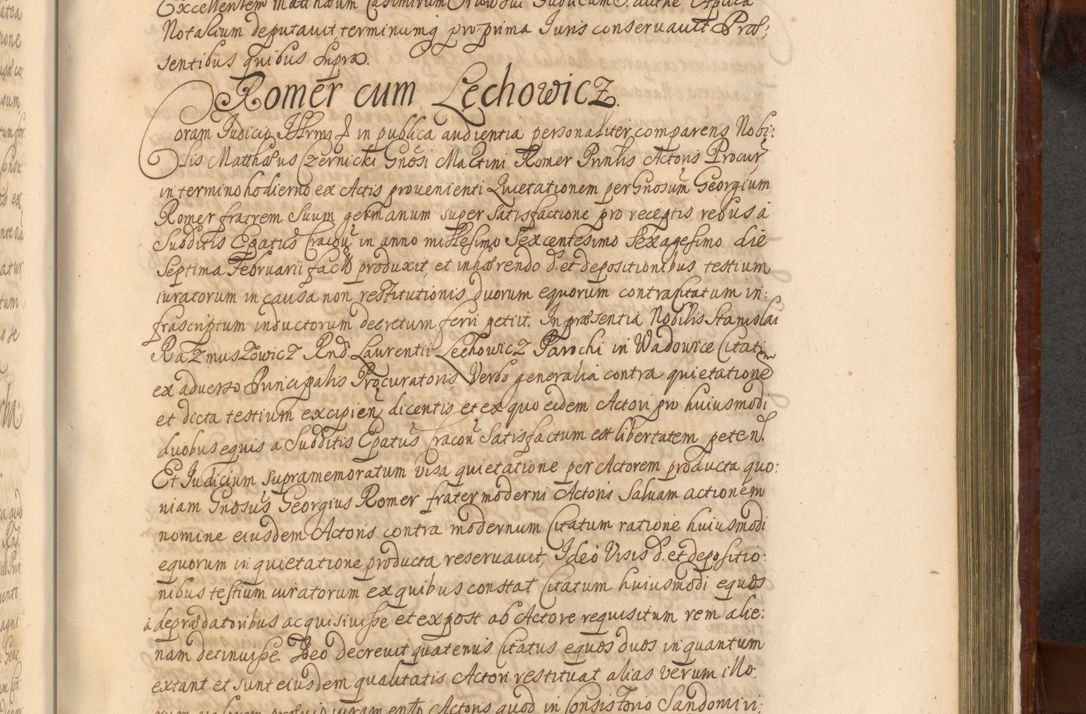 Excellentem Matthaeum Casimirum
Notarium deputavit terminumq pro prima Iuris conservavit Prae:
sentibus quibus supra.
Romer cum Lechowicz.
Coram Iudicio in publica audientia personaliter comparens Nobi:
lis Matthaeus Czernicki Gnosi Martini Romer Prinlis Actoris Procur
in termino hodierno ex Actis provenienti Quietationem per Gnosum Georgium
Romer fratrem suum germanum super satisfactione pro receptis rebus a
Subditis Epatus Cracou in anno millesimo sexcentesimo sexagesimo die
Septima Februarii factã produxit, et inhaerendo d. et depositionibus testium
iuratorum in causa non restitutionis duorum equorum contra Citatum in:
frascriptum inductorum decretum ferri petiit. In praesentia Nobilis Stanislai
Razmuszowicz Rnd Laurentii Lechowicz Parochi in Wadowice Citati
ex adverso Principalis Procuratoris Verbo generalia contra quietationẽ
et dicta testium excipien dicentis et ex quo eidem Actori pro huiusmodi
duobus equis a Subditis Epatus Cracou satisfactum est libertatem peten.
Et Iudicium supramemoratum visa quietatione per Actorem producta quo:
niam Gnosus Georgius Romer frater moderni Actoris salvam actionem
nomine eiusdem Actoris contra modernum Citatum ratione huiusmodi
equorum in quietatione producta reservavit, Ideo Visis d. et depositio:
nibus testium iuratorum ex quibus constat Citatum huiusmodi equos
a depraedatoribus acquisivisse et ex post ab Actore requisitum rem alie:
nam detinuisse. Ideo decrevit quatenus Citatus equos duos in quantum
extant et sunt eiusdem qualitatis Actori restituat alias verum illo:
rum valorem iuramento Actoris quod in Consistorio Sandomiri: